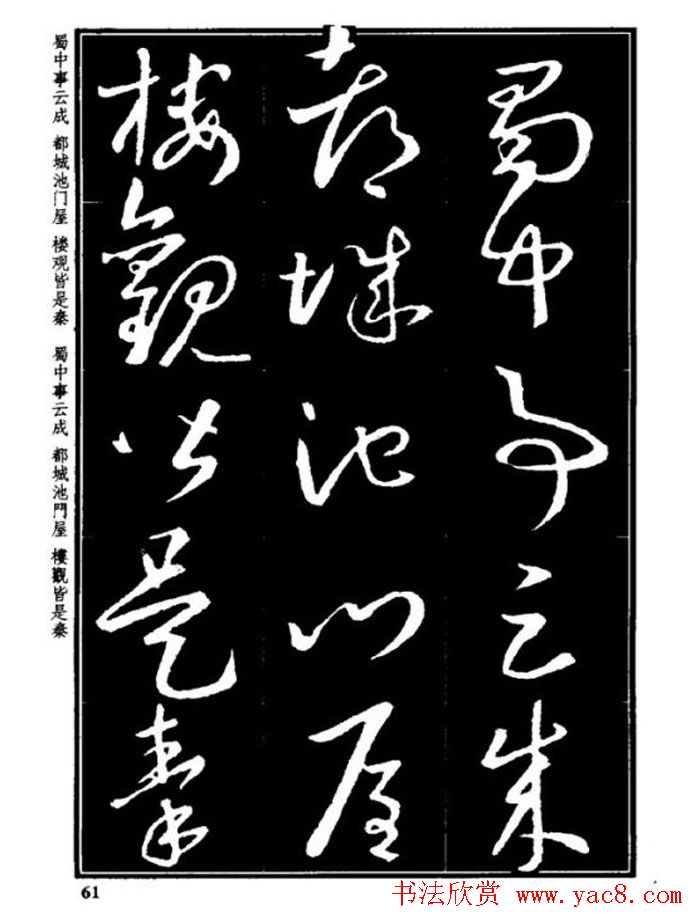 蜀中事云成
都城池門屋
樓觀皆是秦
蜀中事云成 都城池门屋 楼观皆是秦 蜀中事云成 都城池門屋 樓觀皆是秦
61
书法欣赏 www.yac8.com